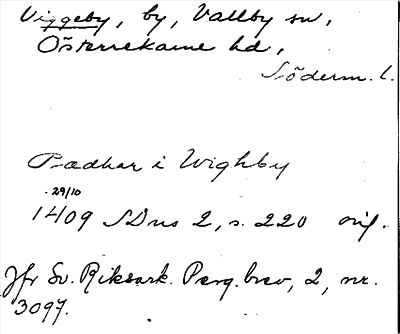 Viggeby, by, Vallby sn,
Österrekarne hd,
Söderm. l.
Rædhar i Wighby
29/10
1409 SDns 2, s. 220 orig.
Jfr Sv. Riksark. Perg.brev, 2, nr.
3097.